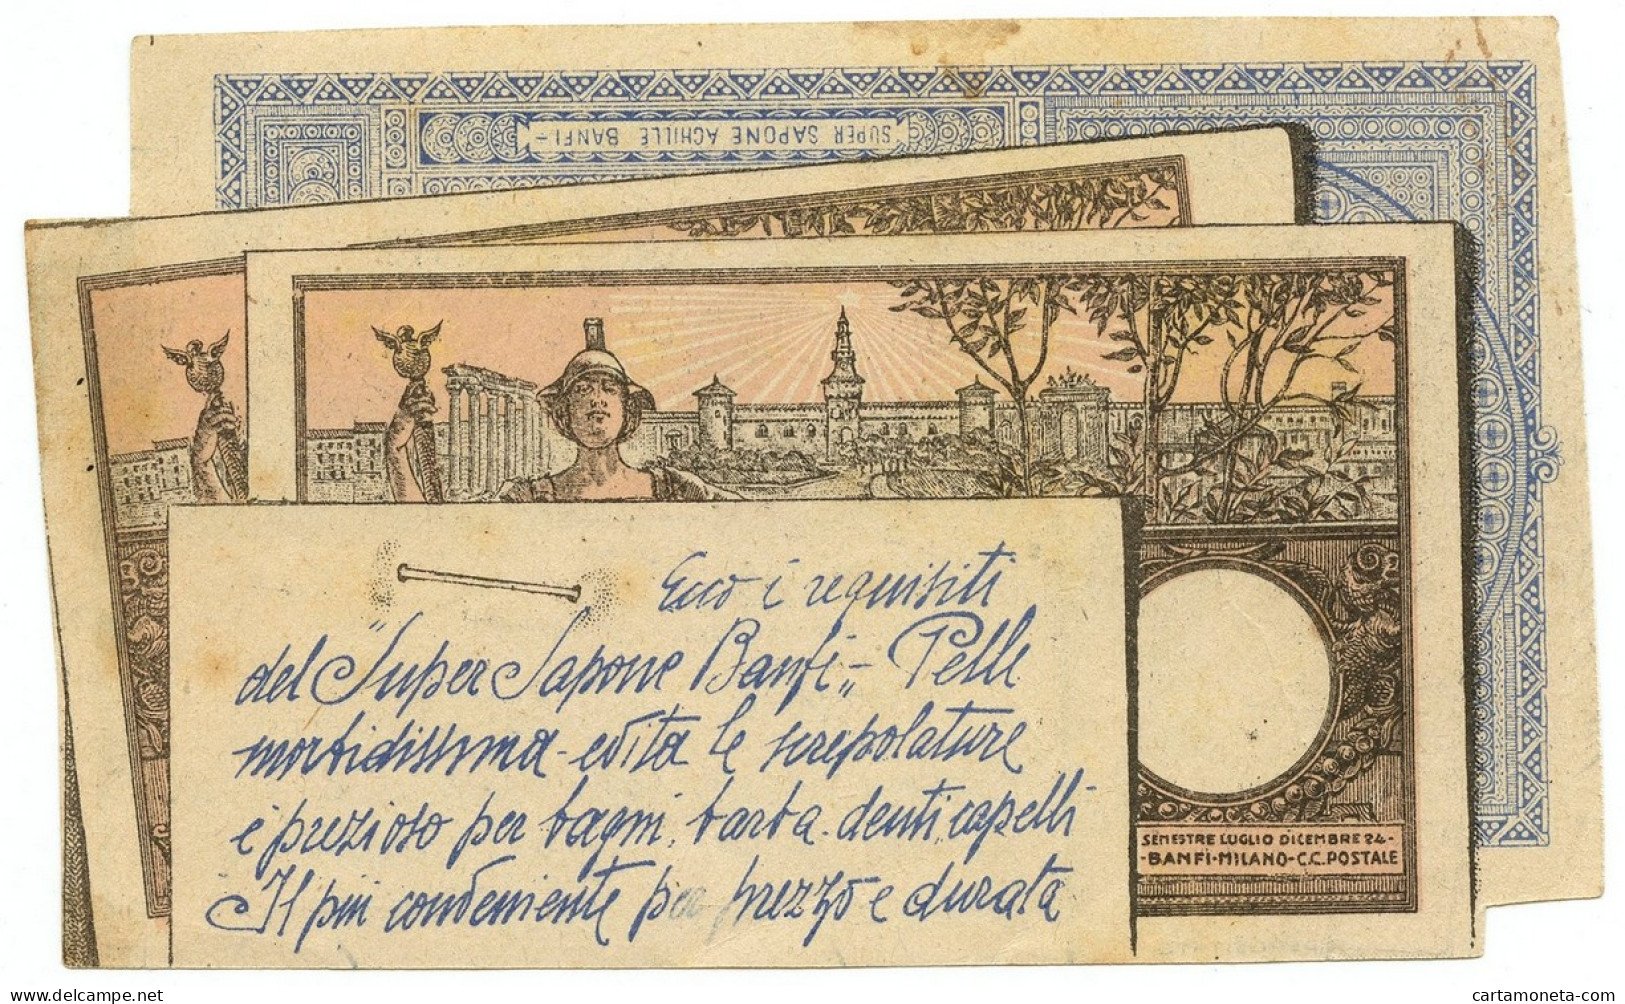 SUPER SAPONE ACHILLE BANFI-
Ecco i requisiti
del "Super Sapone Banfi„ - Pelle
morbidissima - evita le screpolature
è prezioso per bagni, barba. denti, capelli
Il più conveniente per prezzo e durata
SEMESTRE LUGLIO DICEMBRE 24-
-BANFI-MILANO-C.C.POSTALE
cartamoneta-com